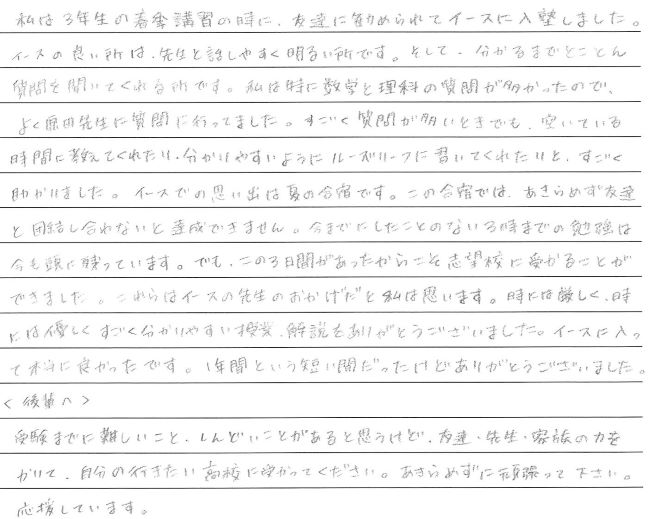 私は3年生の春季講習の時に、友達に勧められてイースに入塾しました。
イースの良い所は、先生と話しやすく明るい所です。そして、分かるまでとことん
質問を聞いてくれる所です。私は特に数学と理科の質問が多かったので、
よく原田先生に質問に行ってました。すごく質問が多いときでも、空いている
時間に教えてくれたり、分かりやすいようにルーズリーフに書いてくれたりと、すごく
助かりました。イースでの思い出は夏の合宿です。この合宿では、あきらめず友達
と団結し合わないと達成できません。今までにしたことのない3時までの勉強は
今も頭に残っています。でも、この3日間があったからこそ志望校に受かることが
できました。これらはイースの先生のおかげだと私は思います。時には厳しく、時
には優しくすごく分かりやすい授業、解説をありがとうございました。イースに入っ
て本当に良かったです。1年間という短い間だったけどありがとうございました。
<後輩へ>
受験までに難しいこと、しんどいことがあると思うけど、友達・先生・家族の力を
かりて、自分の行きたい高校に受かってください。あきらめずに頑張って下さい。
応援しています。